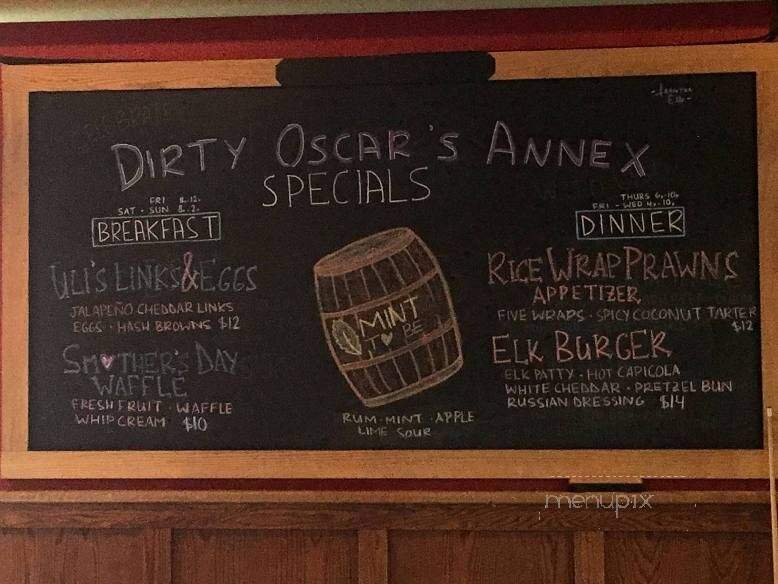 DIRTY OSCAR'S ANNEX
SPECIALS
FRI 8-12
SAT - SUN 8-2
BREAKFAST
ULI'S LINKS & EGGS
JALAPEÑO CHEDDAR LINKS
EGGS · HASH BROWNS $12
SM♥THER'S DAY
WAFFLE
FRESH FRUIT · WAFFLE
WHIP CREAM $10
MINT
T♥ BE
RUM · MINT · APPLE
LIME SOUR
THURS 6-10
FRI - WED 4-10
DINNER
RICE WRAP PRAWNS
APPETIZER
FIVE WRAPS · SPICY COCONUT TARTER
$12
ELK BURGER
ELK PATTY · HOT CAPICOLA
WHITE CHEDDAR · PRETZEL BUN
RUSSIAN DRESSING $14
menupix